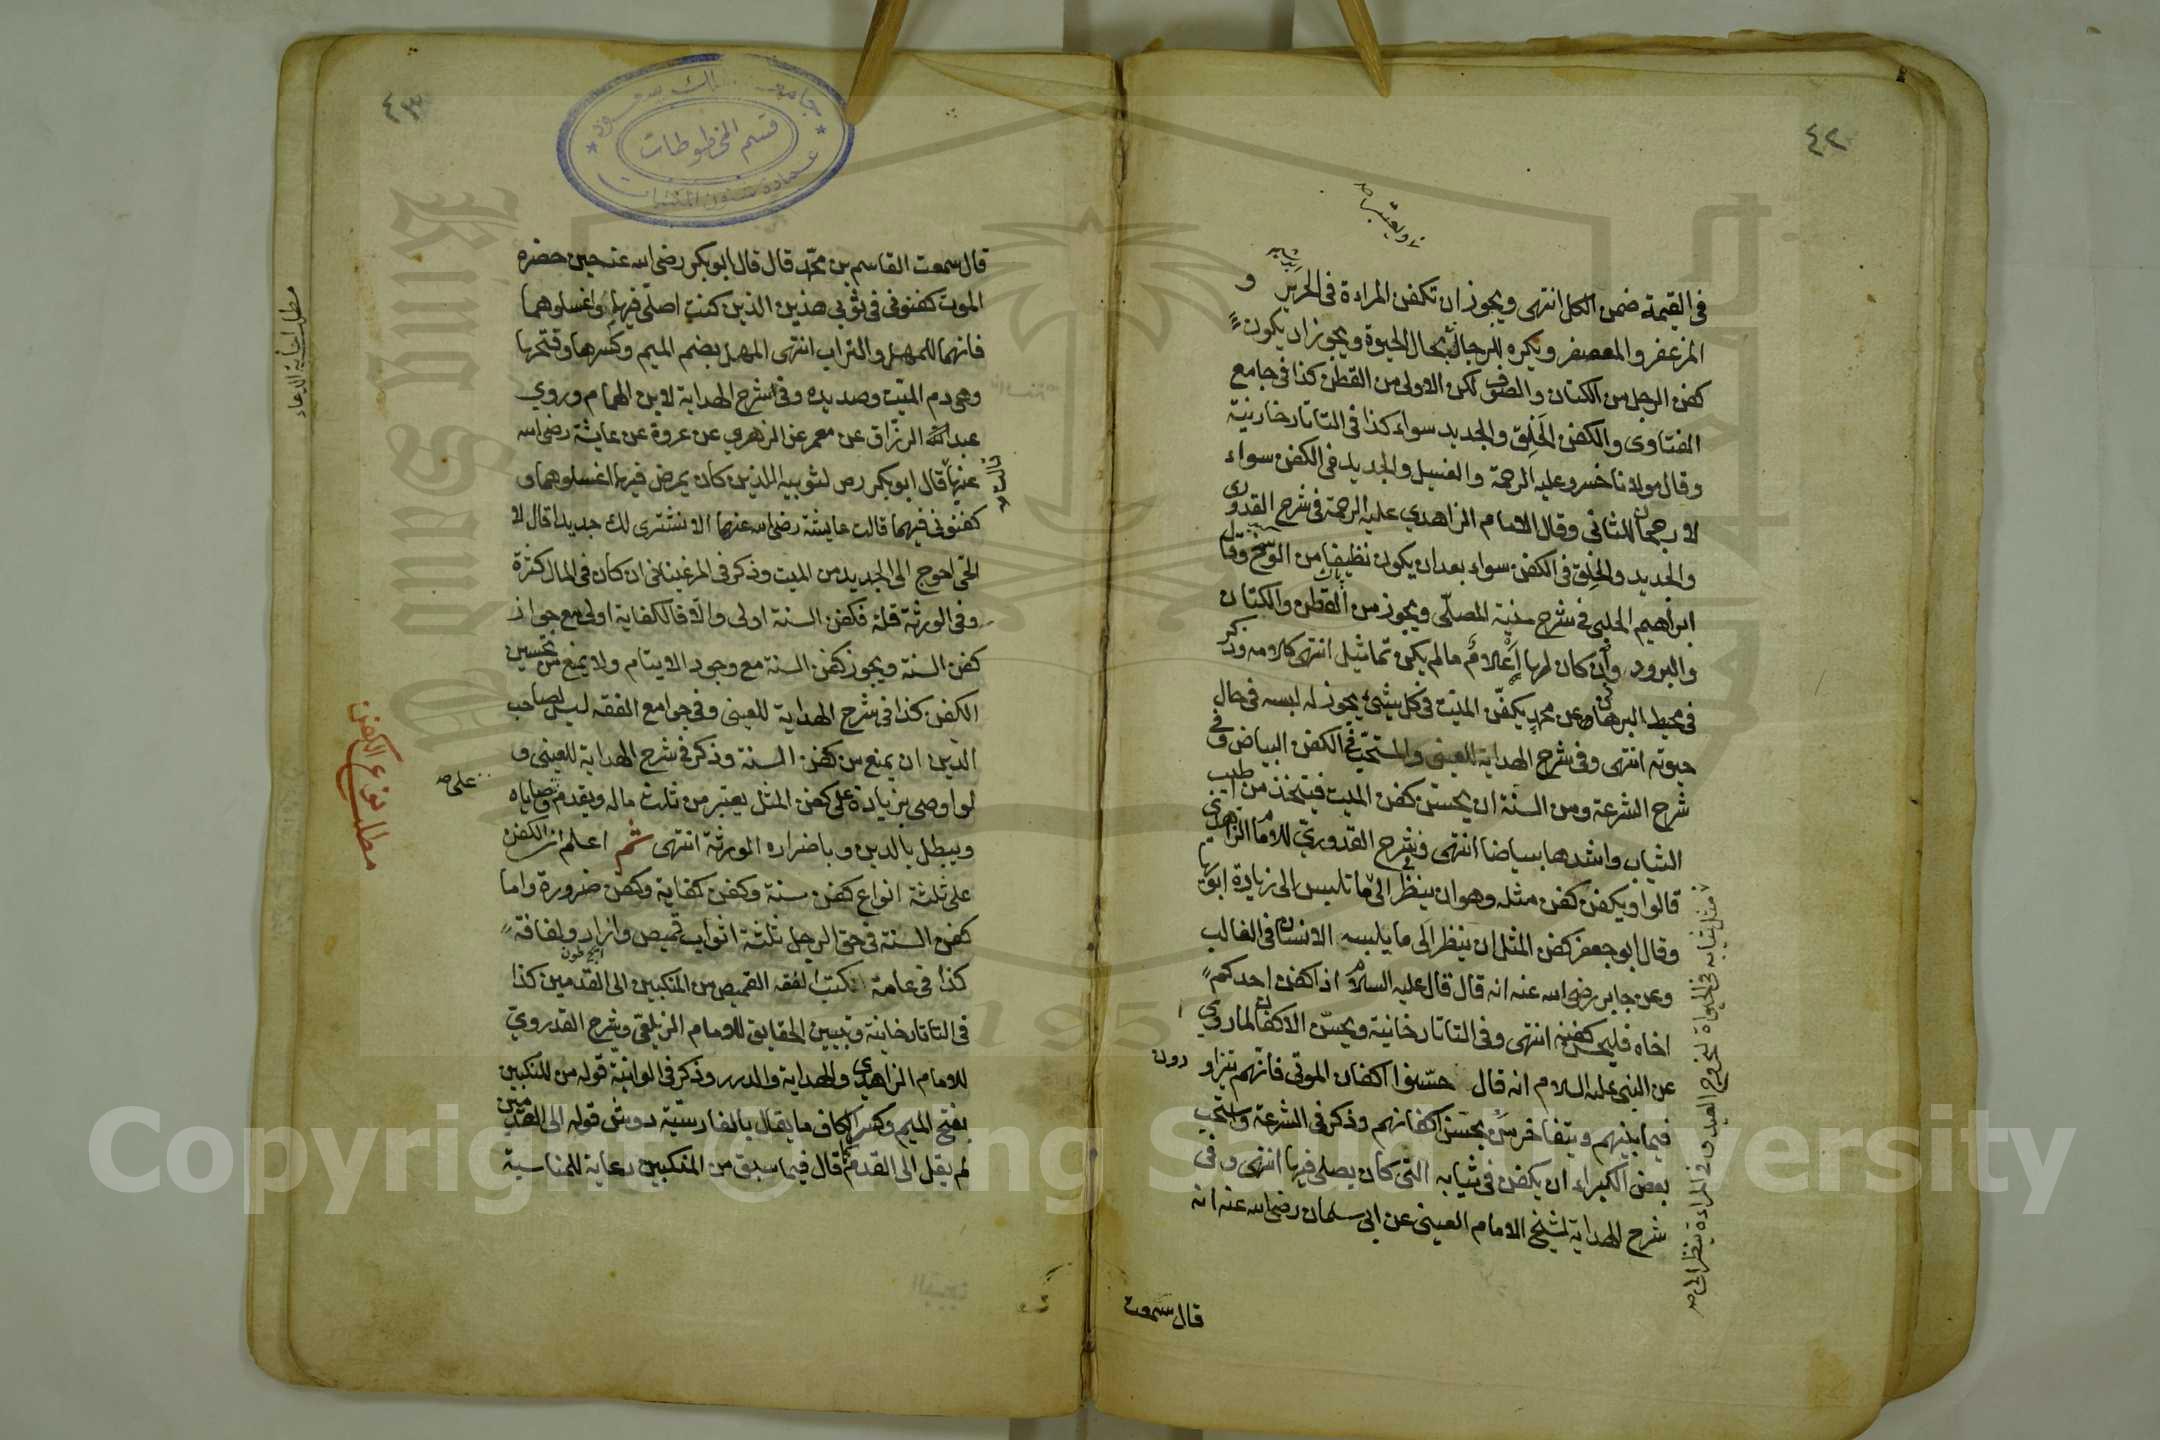 ٤٢
في القيمة ضمن الكل انتهى ويجوز ان تكفن المراءة في الحرير و
المزعفر والمعصفر ويكره للرجال بحال الحيوة ويجوز ان يكون
كفن الرجل من الكتان والصوف لكن الاولى من القطن كذا في جامع
الفتاوى والكفن الخلق والجديد سواء كذا في التاتارخانية
وقال مولانا خسرو عليه الرحمة والغسيل والجديد في الكفن سواء
لا رجحان للثاني وقال الامام الزاهدي عليه الرحمة في شرح القدوري
والجديد والخلق في الكفن سواء بعد ان يكون نظيفا من الوسخ وقال
ابراهيم الحلبي في شرح منية المصلى ويجوز من القطن والكتان
والبرود وان كان لها اعلام مالم يكن تماثيل انتهى كلامه وذكر
في محيط البرهان وعن محمد يكفن الميت في كل شيئ يجوز له لبسه في حال
حيوته انتهى وفي شرح الهداية للعيني والمستحب في الكفن البياض وفي
شرح الشرعة ومن السنة ان يحسن كفن الميت فيتخذ من اطيب
الثياب واشدها بياضا انتهى وفي شرح القدوري للامام الزاهدي
قالوا ويكفن كفن مثله وهو ان ينظر الى ما تلبس الى زيارة ابويها
وقال ابو جعفر كفن المثل ان ينظر الى ما يلبسه الانسان في الغالب
وعن جابر رضى الله عنه انه قال قال عليه السلام اذا كفن احدكم
اخاه فليحسن كفنه انتهى وفي التاتارخانية ويحسن الاكفان لما روي
عن النبي عليه السلام انه قال حسنوا اكفان الموتى فانهم يتزاورون
فيما بينهم ويتفاخرون بحسن اكفانهم وذكر في الشرعة واستحب
بعض الكبراء ان يكفن في ثيابه التي كان يصلي فيها انتهى وفي
شرح الهداية لشيخ الامام العيني عن ابي سلمان رضى الله عنه انه
قال سمعت
مثل ثيابه في الحيواة لخروج العيدين وفي المراءة ينظر الى صح
٤٣
جامعة الملك سعود
قسم المخطوطات
عمادة شئون المكتبات
قال سمعت القاسم بن محمد قال قال ابو بكر رضى الله عنه حين حضره
الموت كفنوني في ثوبي هذين الذين كنت اصلي فيها واغسلوهما
فانهما للمهل والتراب انتهى المهل بضم الميم وكسرها وفتحها
وهى دم الميت وصديده وفي شرح الهداية لابن الهمام وروي
عبد الله الرزاق عن معمر عن الزهري عن عروة عن عايشة رضى الله
عنها قال ابو بكر رض لثوبيه اللذين كان يمرض فيهما اغسلوهما و
كفنوني فيهما قالت عايشة رضى الله عنهما الا نشتري لك جديدا قال لا
الحي احوج الى الجديد من الميت وذكر في المرغيناني ان كان في المال كثرة
وفي الورثة قلة فكفن السنة اولى والا فالكفاية اولى مع جواز
كفن السنة ويجوز كفن السنة مع وجود الايتام ولا يمنع من تحسين
الكفن كذا في شرح الهداية للعيني وفي جوامع الفقه ليس لصاحب
الدين ان يمنع من كفن السنة وذكر في شرح الهداية للعيني و
لو اوصى بزيادة على كفن المثل يعتبر من ثلث ماله ويقدم وصاياه
ويبطل بالدين وباضراره الورثة انتهى ثم اعلم ان الكفن
على ثلثة انواع كفن سنة وكفن كفاية وكفن ضرورة واما
كفن السنة في حق الرجل ثلثة اثواب قميص وازار ولفافة
كذا في عامة كتب الفقه القميص من المنكبين الى القدمين كذا
في التاتارخانية وتبيين الحقايق للامام الزيلعي وشرح القدوري
للامام الزاهدي والهداية والدرر وذكر في الوانية قوله من المنكبين
بفتح الميم وكسر الكاف ما يقال بالفارسية دوش قوله الى القدمين
لم يقل الى القدم كما قال فيما سبق من المنكبين رعاية للمناسبة
مطلب انواع الكفن
على صح
Copyright © King Saud University
King Saud University
1957